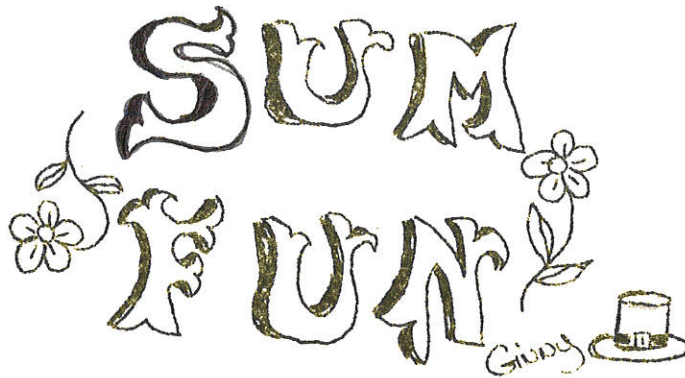 SUM
FUN
Ginny